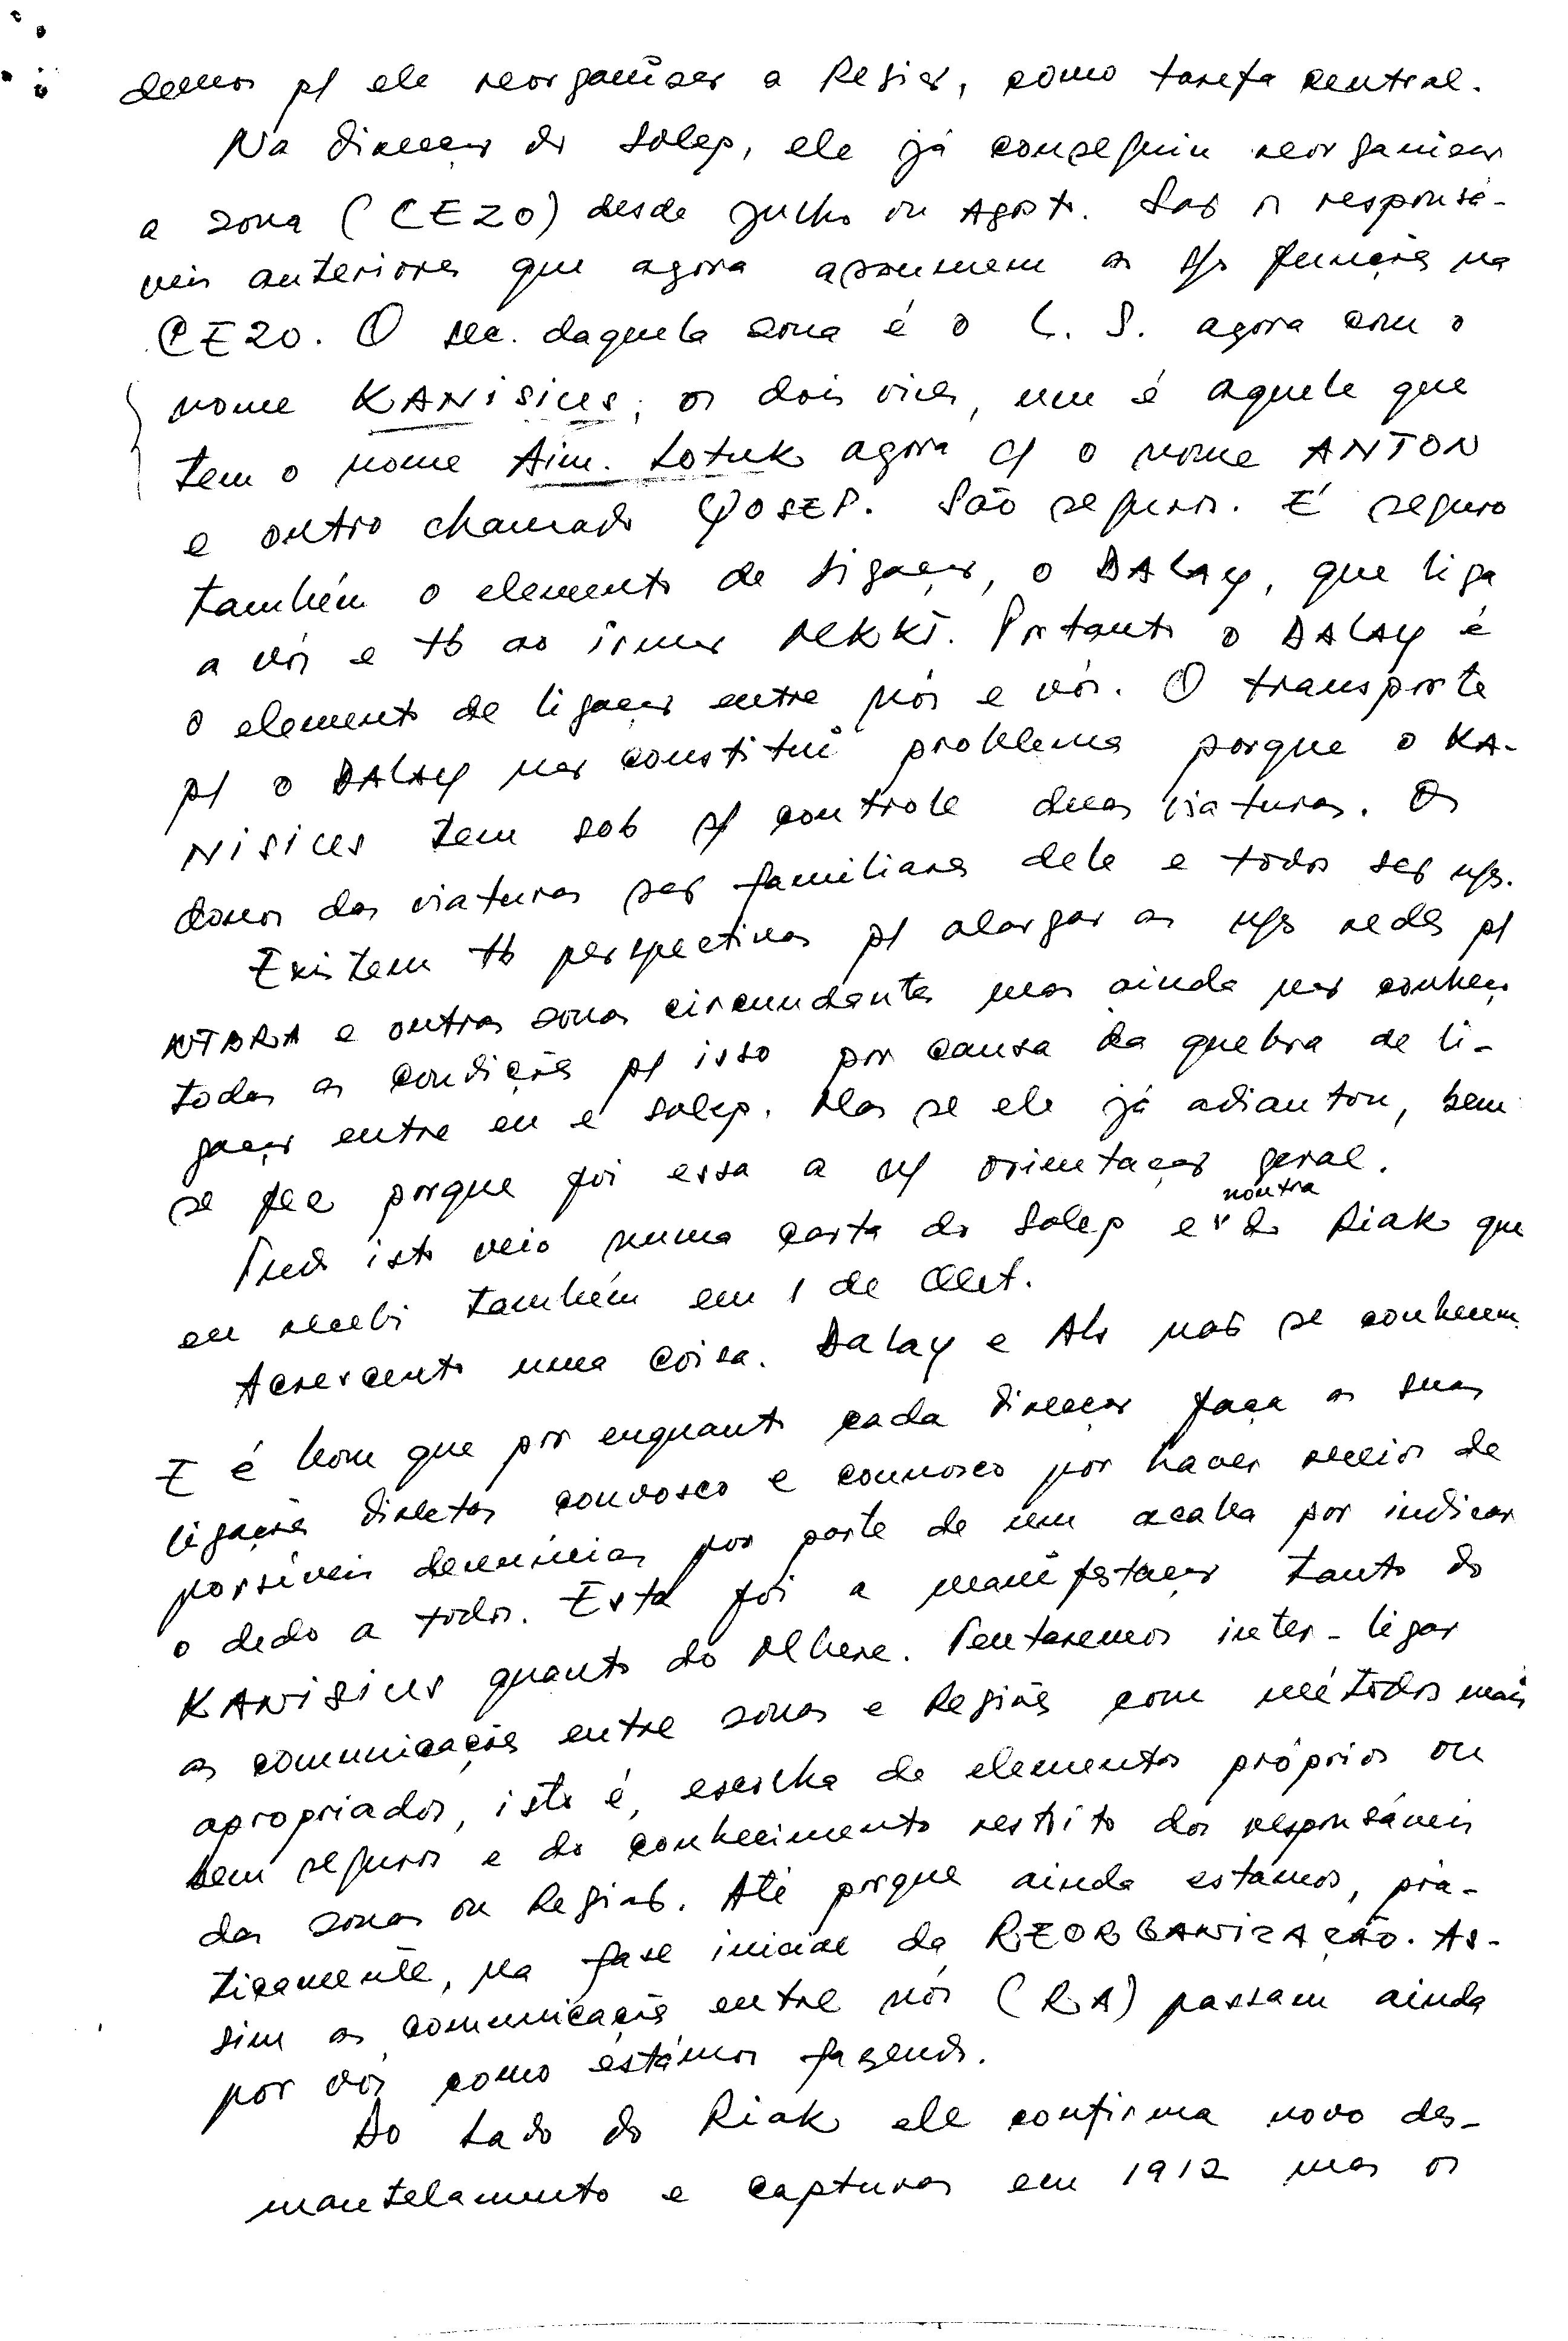 demos p/ ele reorganizar a Região, como tarefa central.
Na direcção do Solep, ele já conseguiu reorganizar
a zona (CEZO) desde julho ou Agosto. São os responsá-
veis anteriores que agora assumem as s/s funções na
CEZO. O sec. daquela zona é o L. S. agora com o
nome KANISIUS; os dois vices, um é aquele que
tem o nome Aim. Lotuk agora c/ o nome ANTON
e outro chamado YOSEP. São seguros. É seguro
também o elemento de ligação, o DALAY, que liga
a vós e tb ao irmão MKKI. Portanto o DALAY é
o elemento de ligação entre nós e vós. O transporte
p/ o DALAY não constitui problema porque o KA-
NISIUS tem sob s/ controle duas viaturas. Os
donos das viaturas são familiares dele e todos são n/s.
Existem tb perspectivas p/ alargar as n/s redes p/
e outras zonas circundantes mas ainda não conheço
todas as condições p/ isso por causa da quebra de li-
gação entre eu e Solep. Mas se ele já adiantou, bem
se fez porque foi essa a n/ orientação geral.
Tudo isto veio numa carta do Solep e noutra do Riak que
eu recebi também em 1 de Out.
Acrescento uma coisa. Dalay e Alo não se conhecem.
E é bom que por enquanto cada direcção faça as suas
ligações directas convosco e connosco por haver receios de
possíveis denúncias por parte de um acaba por indicar
o dedo a todos. Esta foi a manifestação tanto do
KANISIUS quanto do Mhere. Tentaremos inter-ligar
as comunicações entre zonas e Regiões com métodos mais
apropriados, isto é, escolha de elementos próprios ou
bem seguros e do conhecimento restrito dos responsáveis
das zonas ou Regiões. Até porque ainda estámos, prà-
ticamente, na fase inicial da REORGANIZAÇÃO. As-
sim as comunicações entre nós (RA) passam ainda
por vós como estámos fazendo.
Do lado do Riak ele confirma novo des-
mantelamento e capturas em 1912 mas os